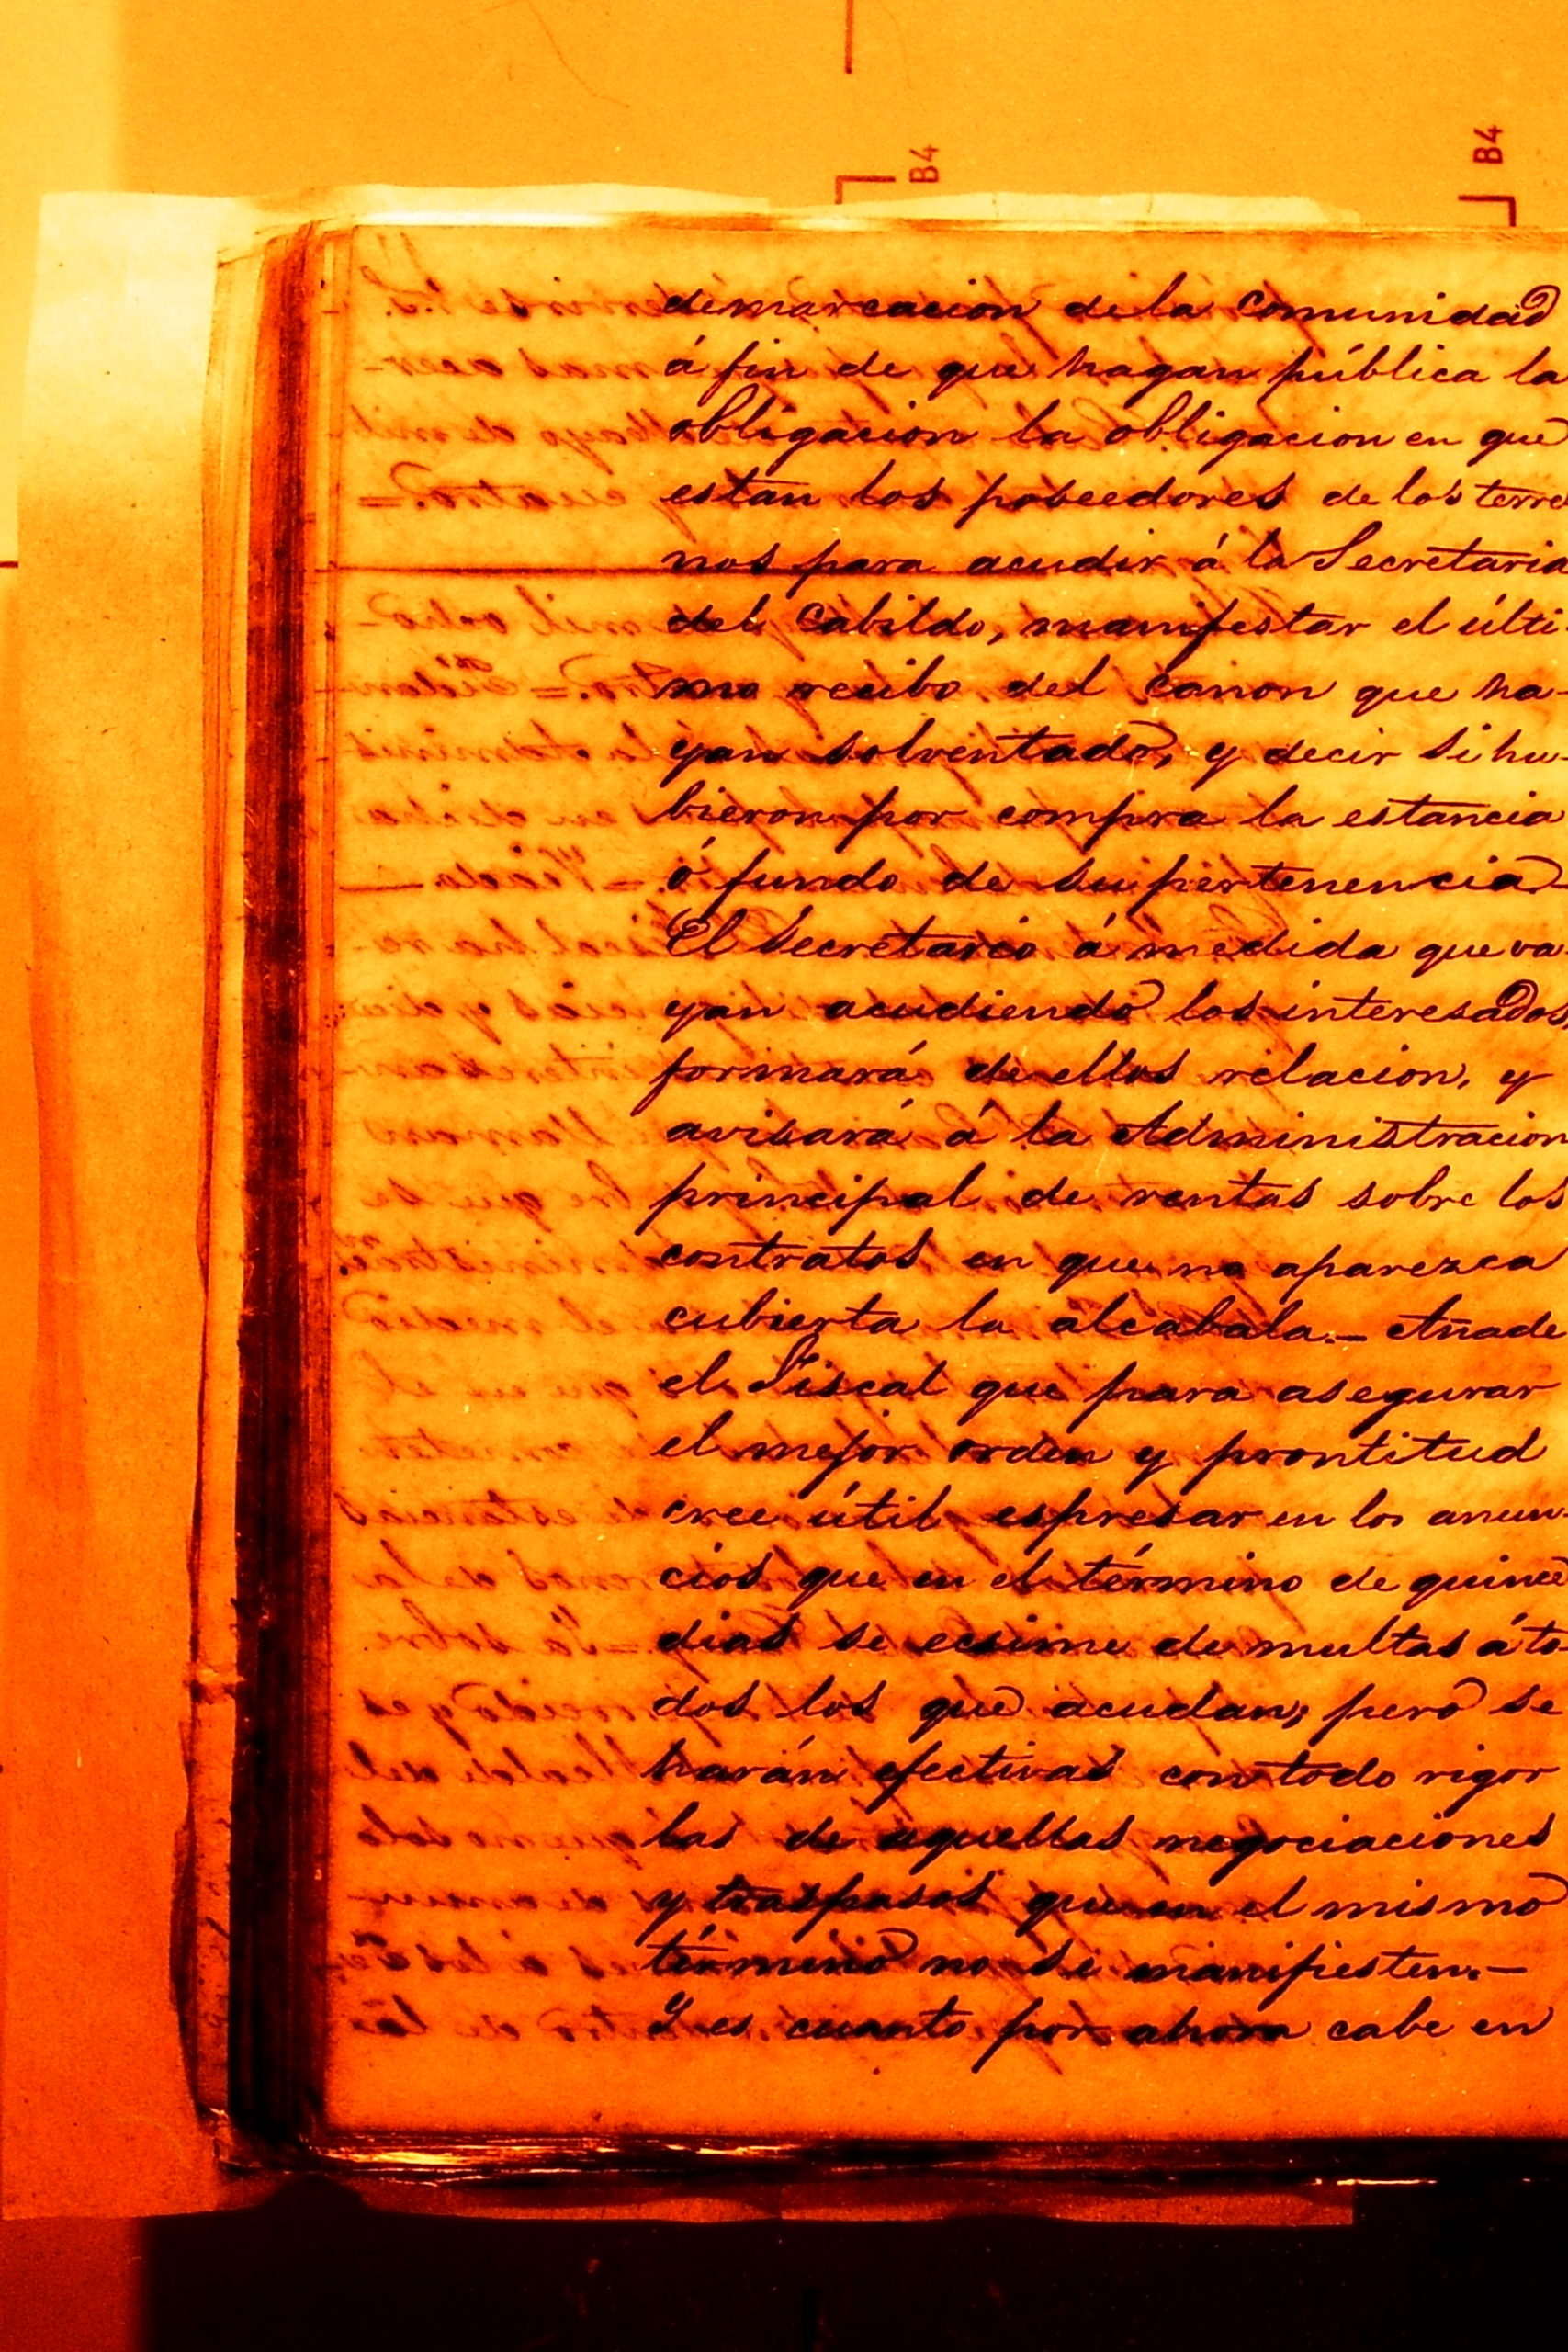 B4
B4
demarcacion de la Comunidad
á fin de que hagan pública la
obligacion la obligacion en que
estan los poseedores de los terre
nos para acudir á la Secretaria
del Cabildo, manifestar el últi-
mo recibo del canon que ha-
yan solventado, y decir si hu-
bieron por compra la estancia
ó fundo de su pertenencia
El Secretario á medida que va-
yan acudiendo los interesados
formará de ellos relacion, y
avisará á la Administracion
principal de rentas sobre los
contratos en que no aparezca
cubierta la alcabala.— Añade
el Fiscal que para asegurar
el mejor orden y prontitud
cree útil espresar en los anun-
cios que en el término de quince
dias se ecsime de multas á to-
dos los que acudan; pero se
harán efectivas con todo rigor
las de aquellas negociaciones
y traspasos que en el mismo
término no se manifiesten.—
Y es cuanto por ahora cabe en